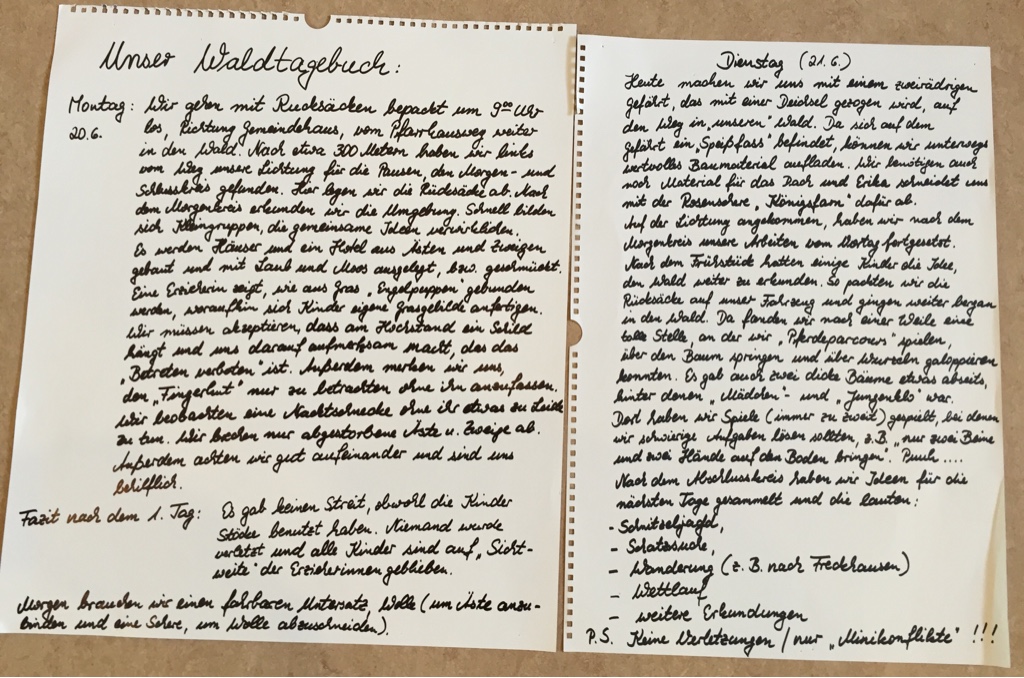 Unser Waldtagebuch:
Montag: Wir gehen mit Rucksäcken bepackt um 9⁰⁰ Uhr
20.6. los, Richtung Gemeindehaus, vom Pfarrhausweg weiter
in den Wald. Nach etwa 300 Metern haben wir links
vom Weg unsere Lichtung für die Pausen, den Morgen- und
Schlusskreis gefunden. Hier legen wir die Rücksäcke ab. Nach
dem Morgenkreis erkunden wir die Umgebung. Schnell bilden
sich Kleingruppen, die gemeinsame Ideen verwirklichen.
Es werden Häuser und ein Hotel aus Ästen und Zweigen
gebaut und mit Laub und Moos ausgelegt, bzw. geschmückt.
Eine Erzieherin zeigt, wie aus Gras „Engelpuppen" gebunden
werden, woraufhin sich Kinder eigene Grasgebilde anfertigen.
Wir müssen akzeptieren, dass am Hochstand ein Schild
hängt und uns darauf aufmerksam macht, das das
„Betreten verboten" ist. Außerdem merken wir uns,
den „Fingerhut" nur zu betrachten ohne ihn anzufassen.
Wir beobachten eine Nachtschnecke ohne ihr etwas zu Leide
zu tun. Wir brechen nur abgestorbene Äste u. Zweige ab.
Außerdem achten wir gut aufeinander und sind uns
behilflich.
Fazit nach dem 1. Tag: Es gab keinen Streit, obwohl die Kinder
Stöcke benutzt haben. Niemand wurde
verletzt und alle Kinder sind auf „Sicht-
weite" der Erzieherinnen geblieben.
Morgen brauchen wir einen fahrbaren Untersatz, Wolle (um Äste anzu-
binden und eine Schere, um Wolle abzuschneiden).
Dienstag (21.6.)
Heute machen wir uns mit einem zweirädrigen
Gefährt, das mit einer Deichsel gezogen wird, auf
den Weg in „unseren" Wald. Da sich auf dem
Gefährt ein „Speißfass" befindet, können wir unterwegs
wertvolles Baumaterial aufladen. Wir benötigen auch
noch Material für das Dach und Erika schneidet uns
mit der Rosenschere „Königsfarn" dafür ab.
Auf der Lichtung angekommen, haben wir nach dem
Morgenkreis unsere Arbeiten vom Vortag fortgesetzt.
Nach dem Frühstück hatten einige Kinder die Idee,
den Wald weiter zu erkunden. So packten wir die
Rücksäcke auf unser Fahrzeug und gingen weiter bergan
in den Wald. Da fanden wir nach einer Weile eine
tolle Stelle, an der wir „Pferdeparcours" spielen,
über den Baum springen und über Wurzeln galoppieren
konnten. Es gab auch zwei dicke Bäume etwas abseits,
hinter denen „Mädchen"- und „Jungenklo" war.
Dort haben wir Spiele (immer zu zweit) gespielt, bei denen
wir schwierige Aufgaben lösen sollten, z.B. „nur zwei Beine
und zwei Hände auf den Boden bringen". Puuh ....
Nach dem Abschlusskreis haben wir Ideen für die
nächsten Tage gesammelt und die lauten:
- Schnitzeljagd,
- Schatzsuche,
- Wanderung (z. B. nach Freckhausen)
- Wettlauf
- weitere Erkundungen
P.S. Keine Verletzungen / nur „Minikonflikte" !!!